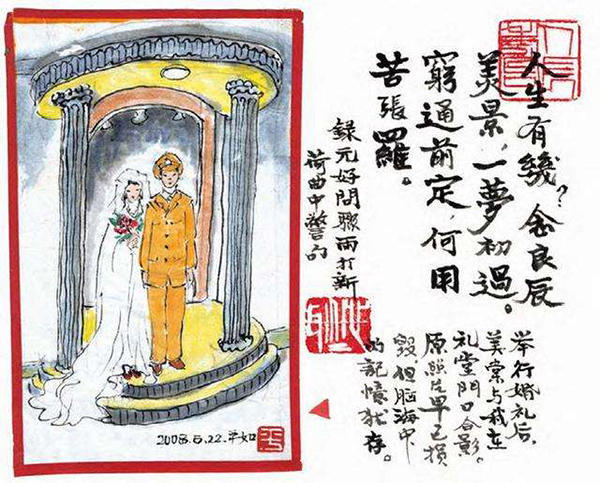 人生有幾？念良辰
美景，一夢初過。
窮通前定，何用
苦張羅。
錄元好問驟雨打新
荷曲中警句
举行婚礼后，
美棠与我在
礼堂門口合影。
原照片早已損
毀，但脑海中
的記憶犹存。
2008.5.22.平如
平